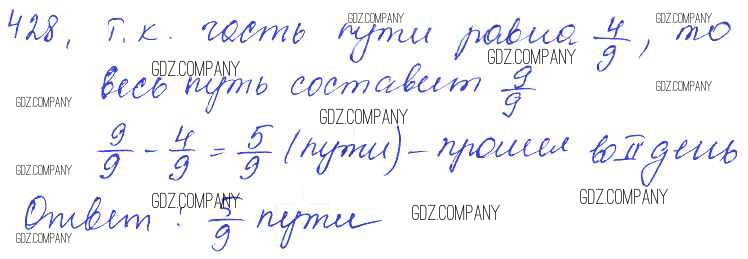 428. Т.к. часть пути равна 4/9, то
весь путь составит 9/9
9/9 - 4/9 = 5/9 (пути) - прошел во II день
Ответ: 5/9 пути
GDZ.COMPANY
GDZ.COMPANY
GDZ.COMPANY
GDZ.COMPANY
GDZ.COMPANY
GDZ.COMPANY
GDZ.COMPANY
GDZ.COMPANY
GDZ.COMPANY
GDZ.COMPANY
GDZ.COMPANY
GDZ.COMPANY
GDZ.COMPANY